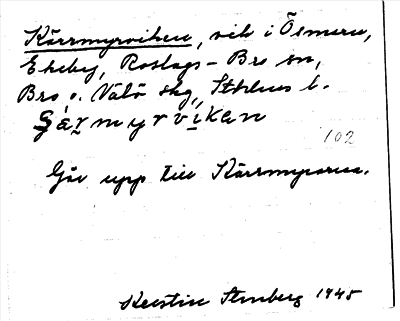 Kärrmyrviken, vik i Ösmaren,
Ekeby, Roslags-Bro sn,
Bro o. Vätö skg, Sthlms l.
ʒä́rmyrvikan
102
Går upp till Kärrmyrarna.
Kerstin Stenberg 1945